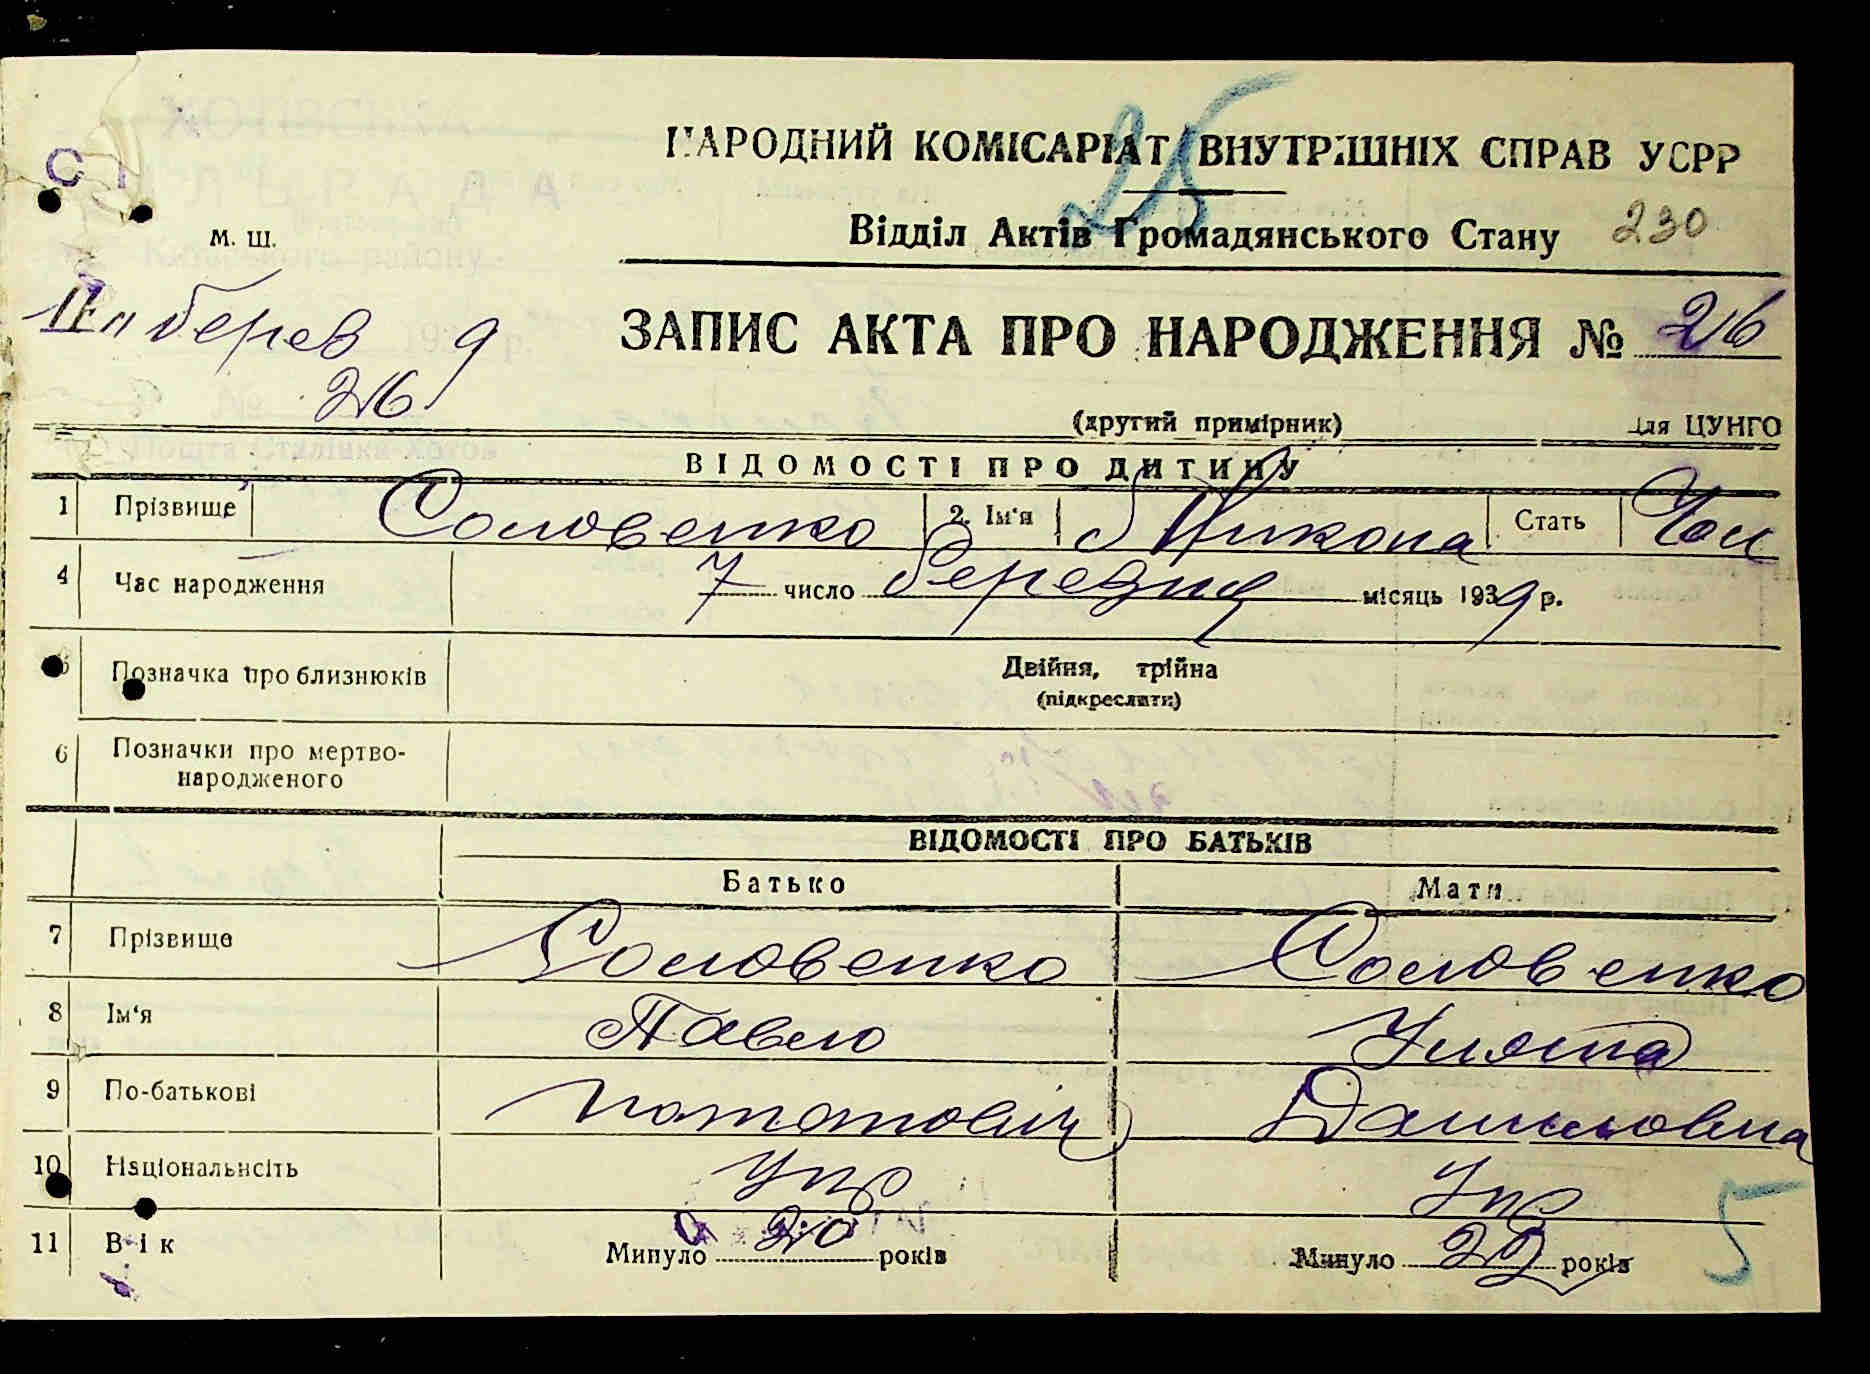 25
НАРОДНИЙ КОМІСАРІАТ ВНУТРІШНІХ СПРАВ УСРР
Відділ Актів Громадянського Стану 230
М. Ш.
11 берез 9
ЗАПИС АКТА ПРО НАРОДЖЕННЯ № 26
26
(другий примірник) Для ЦУНГО
ВІДОМОСТІ ПРО ДИТИНУ
1 Прізвище Соловенко 2. Ім'я Микола Стать Чол
4 Час народження 7 число березня місяць 1939 р.
5 Позначка про близнюків Двійня, трійна
(підкреслити)
6 Позначки про мертво-
народженого
ВІДОМОСТІ ПРО БАТЬКІВ
Батько Мати
7 Прізвище Соловенко Соловенко
8 Ім'я Павло Улята
9 По-батькові Потапович Даниловна
10 Національність Укр Укр
11 Вік Минуло 20 років Минуло років
5